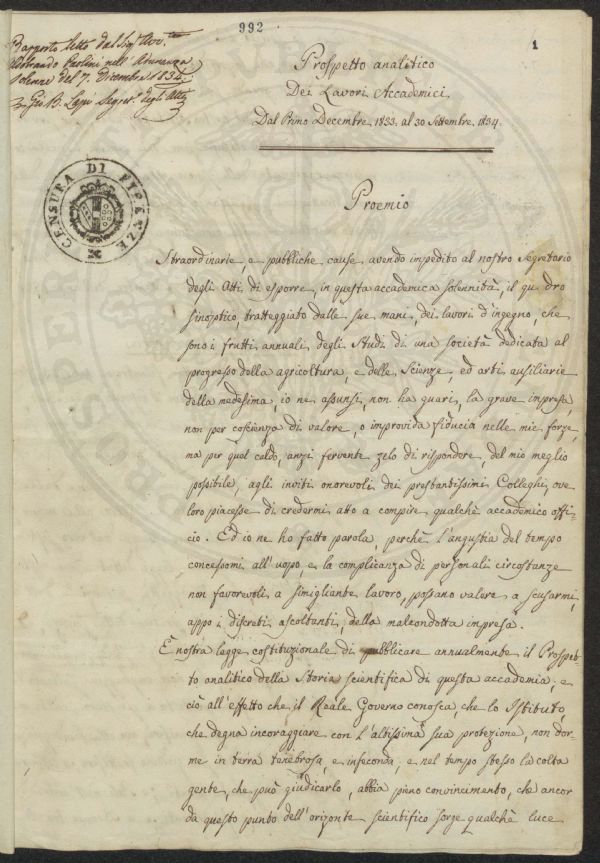 992
1
Rapporto letto dal Sig.r Avv.
Aldobrando Paolini nell'Adunanza
Solenne del 7. Dicembre 1834.
Gio B. Lapi Segret.o degli Atti
Prospetto analitico
Dei Lavori Accademici
Dal Primo Decembre 1833 al 30 Settembre 1834.
CENSURA DI FIRENZE
Proemio
Straordinarie, e pubbliche cause avendo impedito al nostro Segretario
degli Atti di esporre, in questa accademica solennità, il quadro
sinoptico, tratteggiato dalle sue mani, dei lavori d'ingegno, che
sono i frutti annuali degli Studi di una società dedicata al
progresso della agricoltura, e delle Scienze, ed arti ausiliarie
della medesima, io ne assunsi, non ha guari, la grave impresa,
non per coscienza di valore, o improvida fiducia nelle mie forze,
ma per quel caldo, anzi fervente zelo di rispondere, del mio meglio
possibile, agli inviti onorevoli dei prestantissimi Colleghi, ove
loro piacesse di credermi atto a compire qualche accademico offi-
cio. Ed io ne ho fatto parola, perchè l'angustia del tempo
concessomi all'uopo, e la complicanza di personali circostanze
non favorevoli a simigliante lavoro, possano valere a scusarmi,
appo i discreti ascoltanti, della malcondotta impresa.
È nostra legge costituzionale di pubblicare annualmente il Prospet-
to analitico della Storia scientifica di questa accademia; e
ciò all'effetto che il Reale Governo conosca, che lo Istituto,
che degna incoraggiare con l'altissima sua protezione, non dor-
me in terra tenebrosa, e infeconda, e nel tempo stesso la colta
gente, che può giudicarlo, abbia pieno convincimento, che ancor
da questo punto dell'orizonte scientifico sorge qualche luce